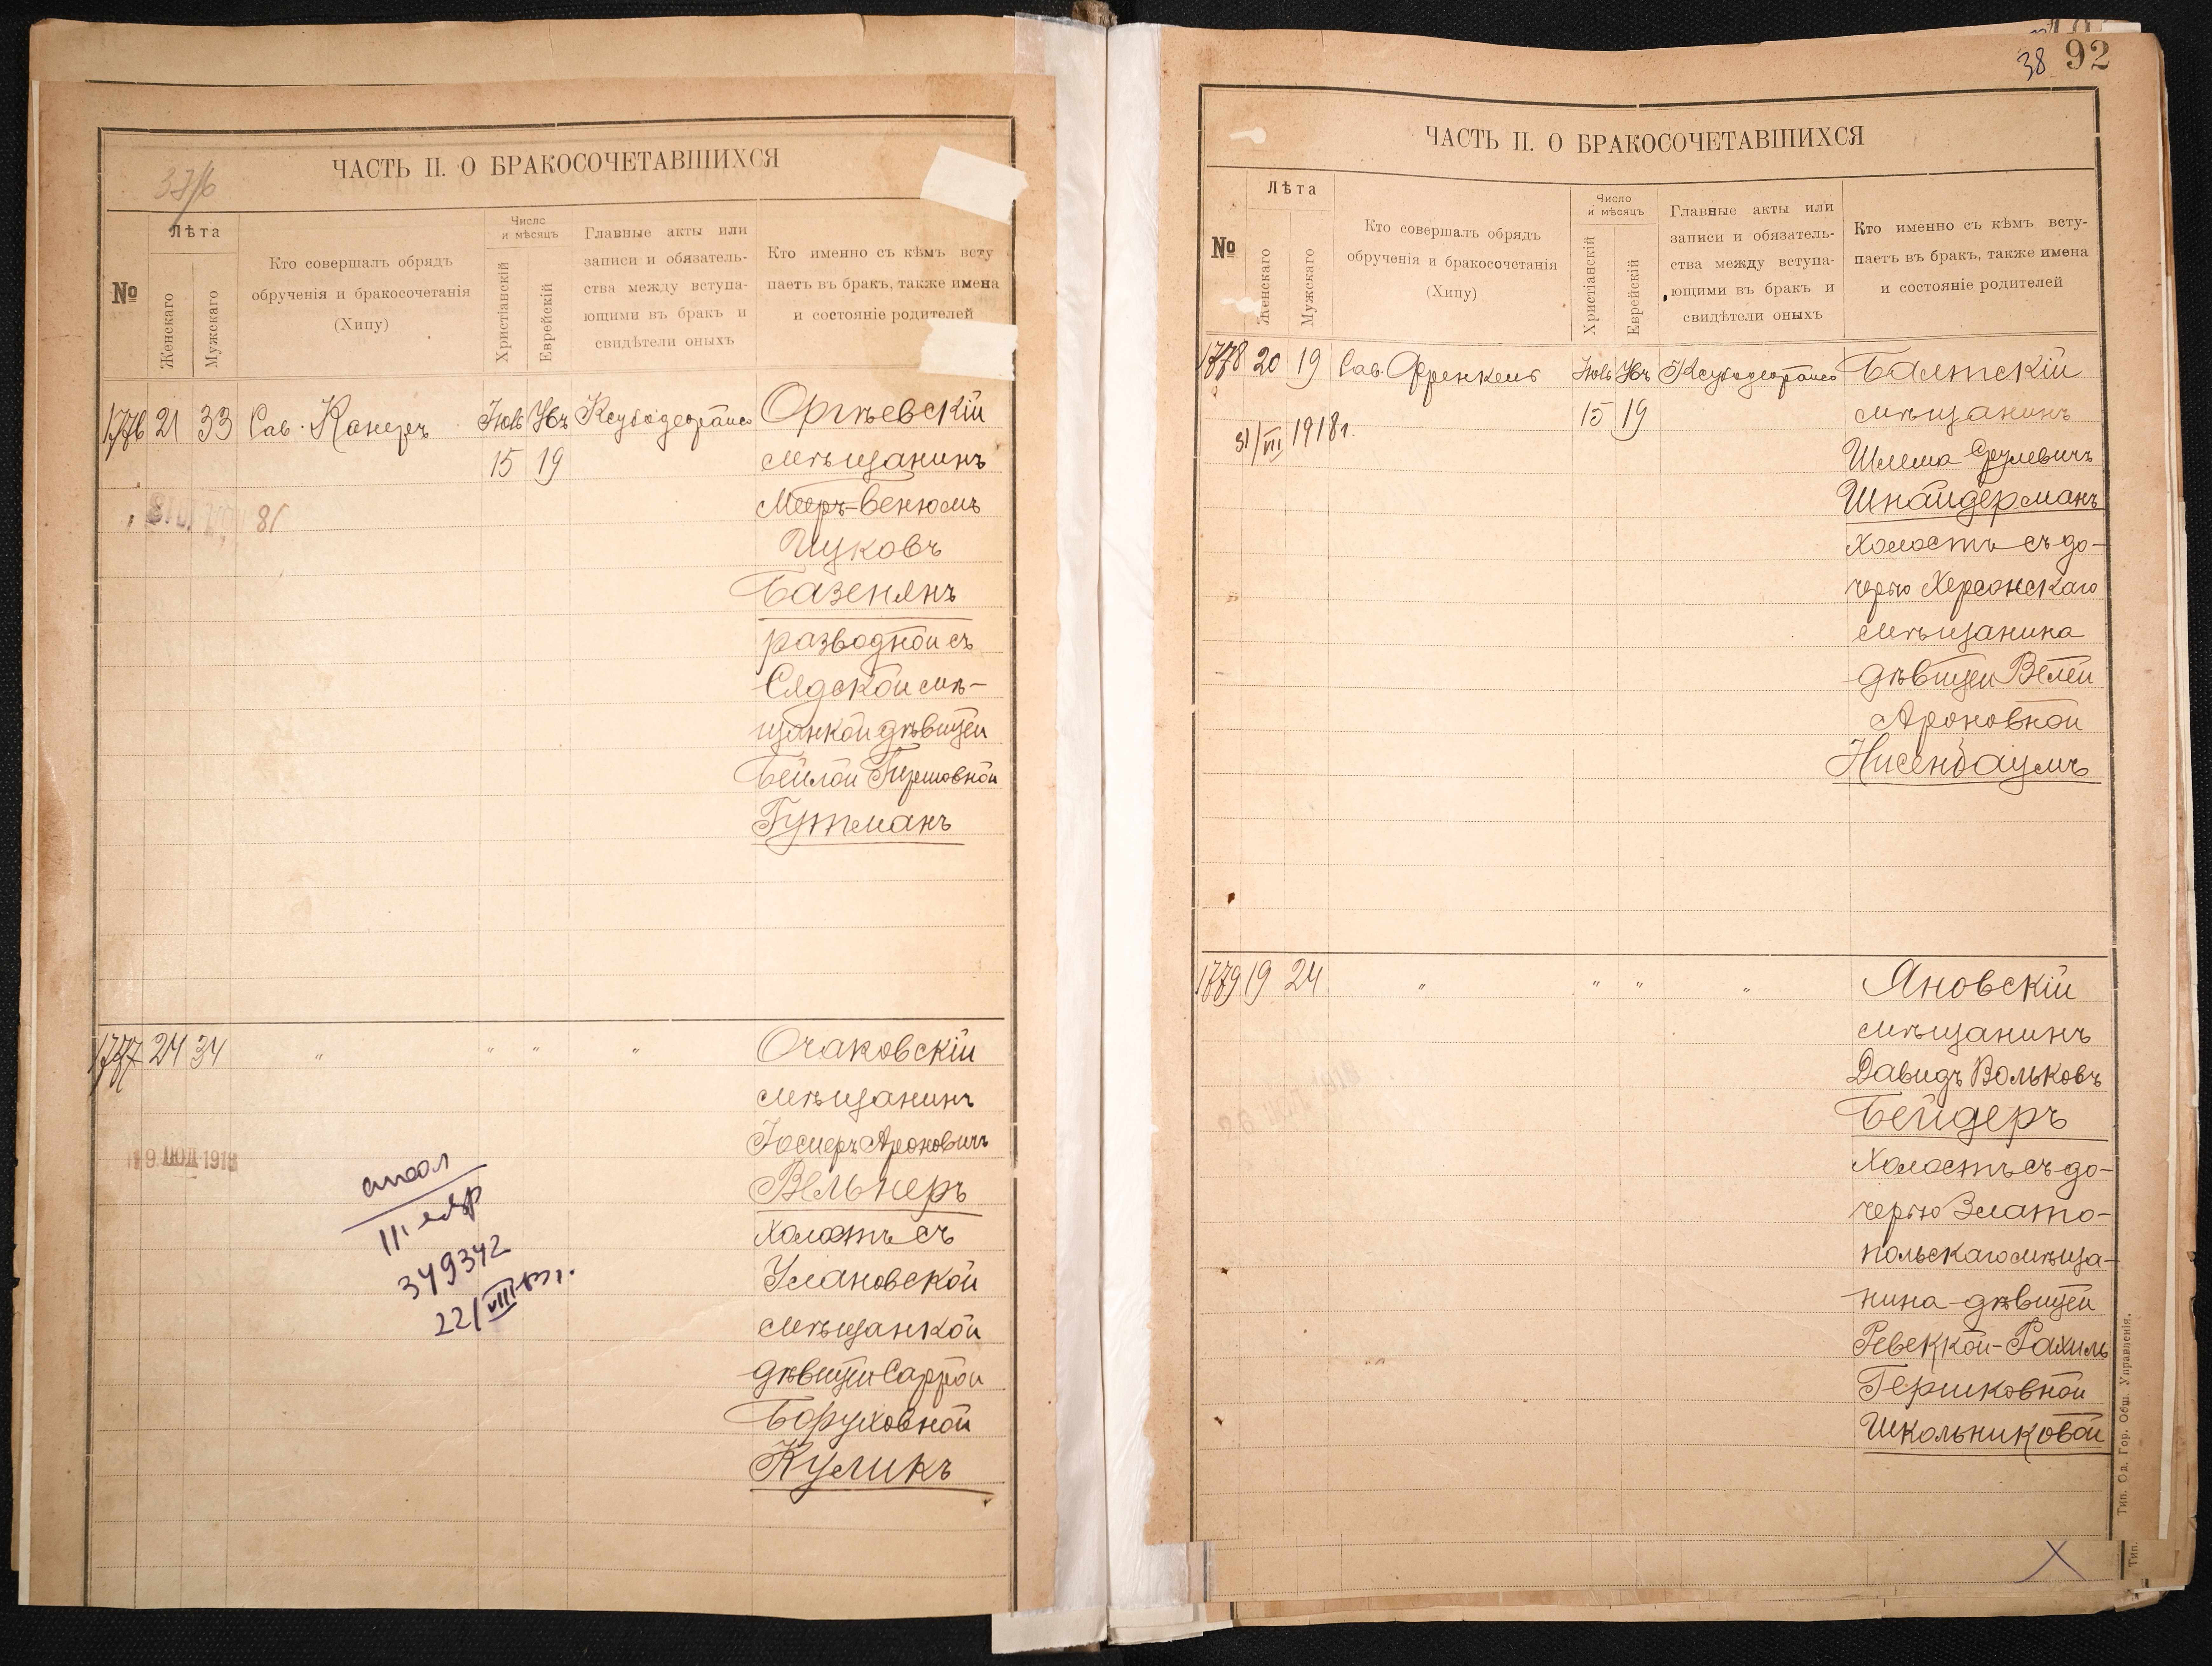 ЧАСТЬ II. О БРАКОСОЧЕТАВШИХСЯ
№
Лѣта
Женскаго
Мужскаго
Кто совершалъ обрядъ
обрученія и бракосочетанія
(Хипу)
Число
и мѣсяцъ
Христіанскій
Еврейскій
Главные акты или
записи и обязатель-
ства между вступа-
ющими въ бракъ и
свидѣтели оныхъ
Кто именно съ кѣмъ всту
паетъ въ бракъ, также имена
и состояніе родителей
1776 21 33 Сав. Канеръ
15 19
Оргѣевскій
мѣщанинъ
Мееръ-Бенюмъ
Ицковъ
Базенянъ
разводной съ
мѣ-
щанкой дѣвицей
Бейлой Гершовной
Гутманъ
1777 24 34 " " " "
Очаковскій
мѣщанинъ
Іосифъ Ароновичъ
Вельнеръ
холостъ съ
Улановской
мѣщанкой
дѣвицей Саррой
Боруховной
Куликъ
9 ІЮЛ 1918
III
349342
22/VIII
38 92
ЧАСТЬ II. О БРАКОСОЧЕТАВШИХСЯ
№
Лѣта
Женскаго
Мужскаго
Кто совершалъ обрядъ
обрученія и бракосочетанія
(Хипу)
Число
и мѣсяцъ
Христіанскій
Еврейскій
Главные акты или
записи и обязатель-
ства между вступа-
ющими въ бракъ и
свидѣтели оныхъ
Кто именно съ кѣмъ всту-
паетъ въ бракъ, также имена
и состояніе родителей
1778 20 19 Сав. Френкель
15 19
31/VII 1918 г.
Балтскій
мѣщанинъ
Шлема Срулевичъ
Шнайдерманъ
холостъ съ до-
черью Херсонскаго
мѣщанина
дѣвицей Велей
Ароновной
Нисенбаумъ
1779 19 24 " " " "
Яновскій
мѣщанинъ
Давидъ Вольковъ
Бейдеръ
холостъ съ до-
черью Злато-
польскаго мѣща-
нина дѣвицей
Ревеккой-Рахиль
Гершковной
Школьниковой
Тип. Од. Гор. Общ. Управленія.
Тип.